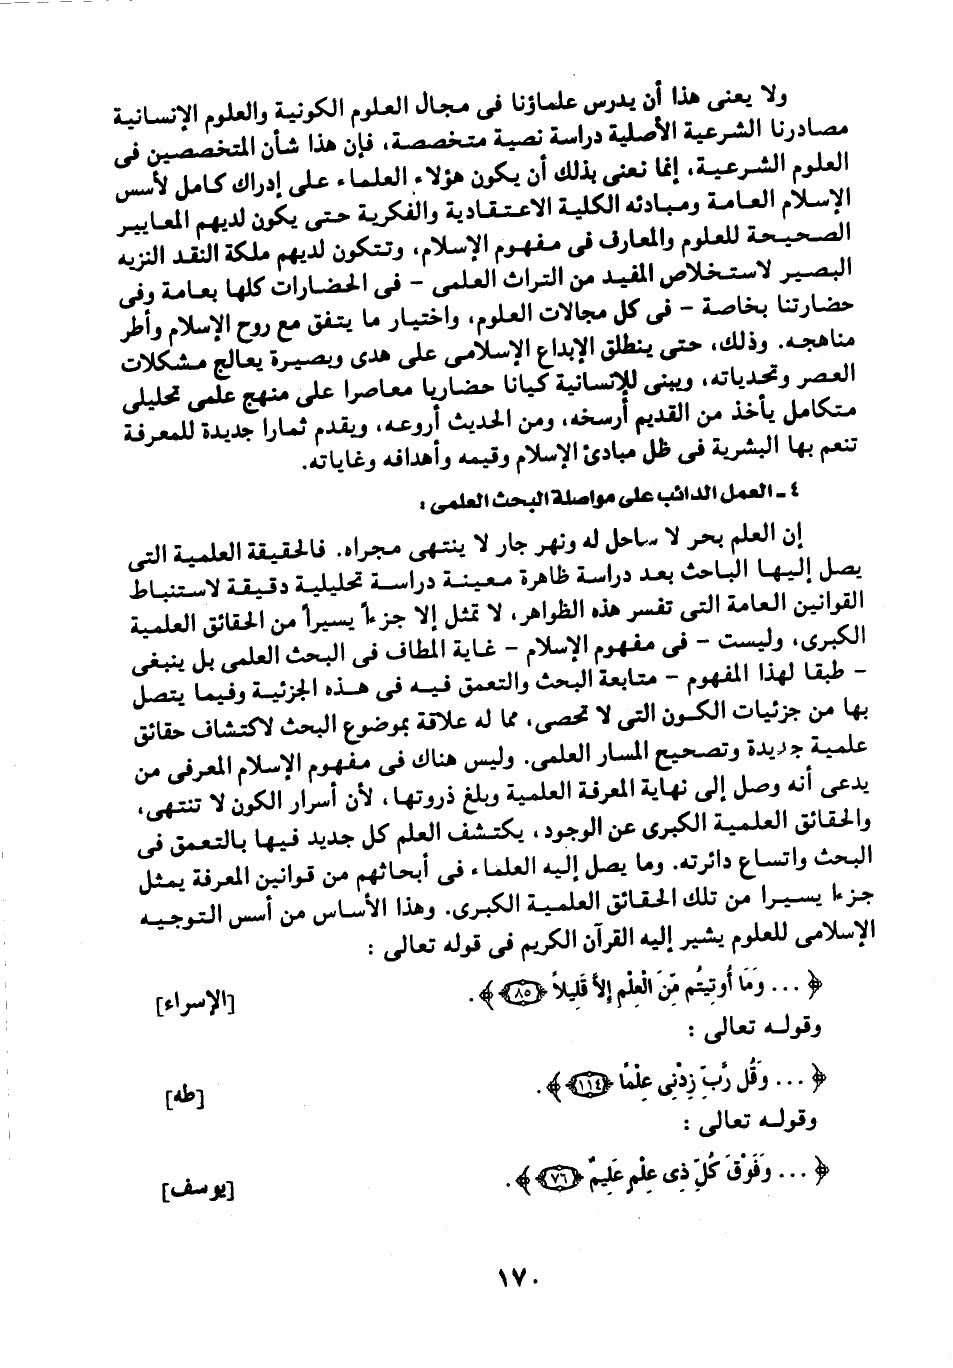 ولا يعنى هذا أن يدرس علماؤنا فى مجال العلوم الكونية والعلوم الإنسانية
مصادرنا الشرعية الأصلية دراسة نصية متخصصة، فإن هذا شأن المتخصصين فى
العلوم الشرعية، إنما نعنى بذلك أن يكون هؤلاء العلماء على إدراك كامل لأسس
الإسلام العامة ومبادئه الكلية الاعتقادية والفكرية حتى يكون لديهم المعايير
الصحيحة للعلوم والمعارف فى مفهوم الإسلام، وتتكون لديهم ملكة النقد النزيه
البصير لاستخلاص المفيد من التراث العلمى - فى الحضارات كلها بعامة وفى
حضارتنا بخاصة - فى كل مجالات العلوم، واختيار ما يتفق مع روح الإسلام وأطر
مناهجه. وذلك، حتى ينطلق الإبداع الإسلامى على هدى وبصيرة يعالج مشكلات
العصر وتحدياته، ويبنى للإنسانية كيانا حضاريا معاصرا على منهج علمى تحليلى
متكامل يأخذ من القديم أرسخه، ومن الحديث أروعه، ويقدم ثمارا جديدة للمعرفة
تنعم بها البشرية فى ظل مبادئ الإسلام وقيمه وأهدافه وغاياته.
٤ - العمل الدائب على مواصلة البحث العلمى :
إن العلم بحر لا ساحل له ونهر جار لا ينتهى مجراه. فالحقيقة العلمية التى
يصل إليها الباحث بعد دراسة ظاهرة معينة دراسة تحليلية دقيقة لاستنباط
القوانين العامة التى تفسر هذه الظواهر، لا تمثل إلا جزءاً يسيراً من الحقائق العلمية
الكبرى، وليست - فى مفهوم الإسلام - غاية المطاف فى البحث العلمى بل ينبغى
- طبقا لهذا المفهوم - متابعة البحث والتعمق فيه فى هذه الجزئية وفيما يتصل
بها من جزئيات الكون التى لا تحصى، مما له علاقة بموضوع البحث لاكتشاف حقائق
علمية جديدة وتصحيح المسار العلمى. وليس هناك فى مفهوم الإسلام المعرفى من
يدعى أنه وصل إلى نهاية المعرفة العلمية وبلغ ذروتها، لأن أسرار الكون لا تنتهى،
والحقائق العلمية الكبرى عن الوجود، يكتشف العلم كل جديد فيها بالتعمق فى
البحث واتساع دائرته. وما يصل إليه العلماء فى أبحاثهم من قوانين المعرفة يمثل
جزءا يسيرا من تلك الحقائق العلمية الكبرى. وهذا الأساس من أسس التوجيه
الإسلامى للعلوم يشير إليه القرآن الكريم فى قوله تعالى :
﴿ ... وَمَا أُوتِيتُم مِّنَ الْعِلْمِ إِلاَّ قَلِيلاً ٨٥ ﴾. [الإسراء]
وقوله تعالى :
﴿ ... وَقُل رَّبِّ زِدْنِى عِلْمًا ١١٤ ﴾. [طه]
وقوله تعالى :
﴿ ... وَفَوْقَ كُلِّ ذِى عِلْمٍ عَلِيمٌ ٧٦ ﴾. [يوسف]
١٧٠